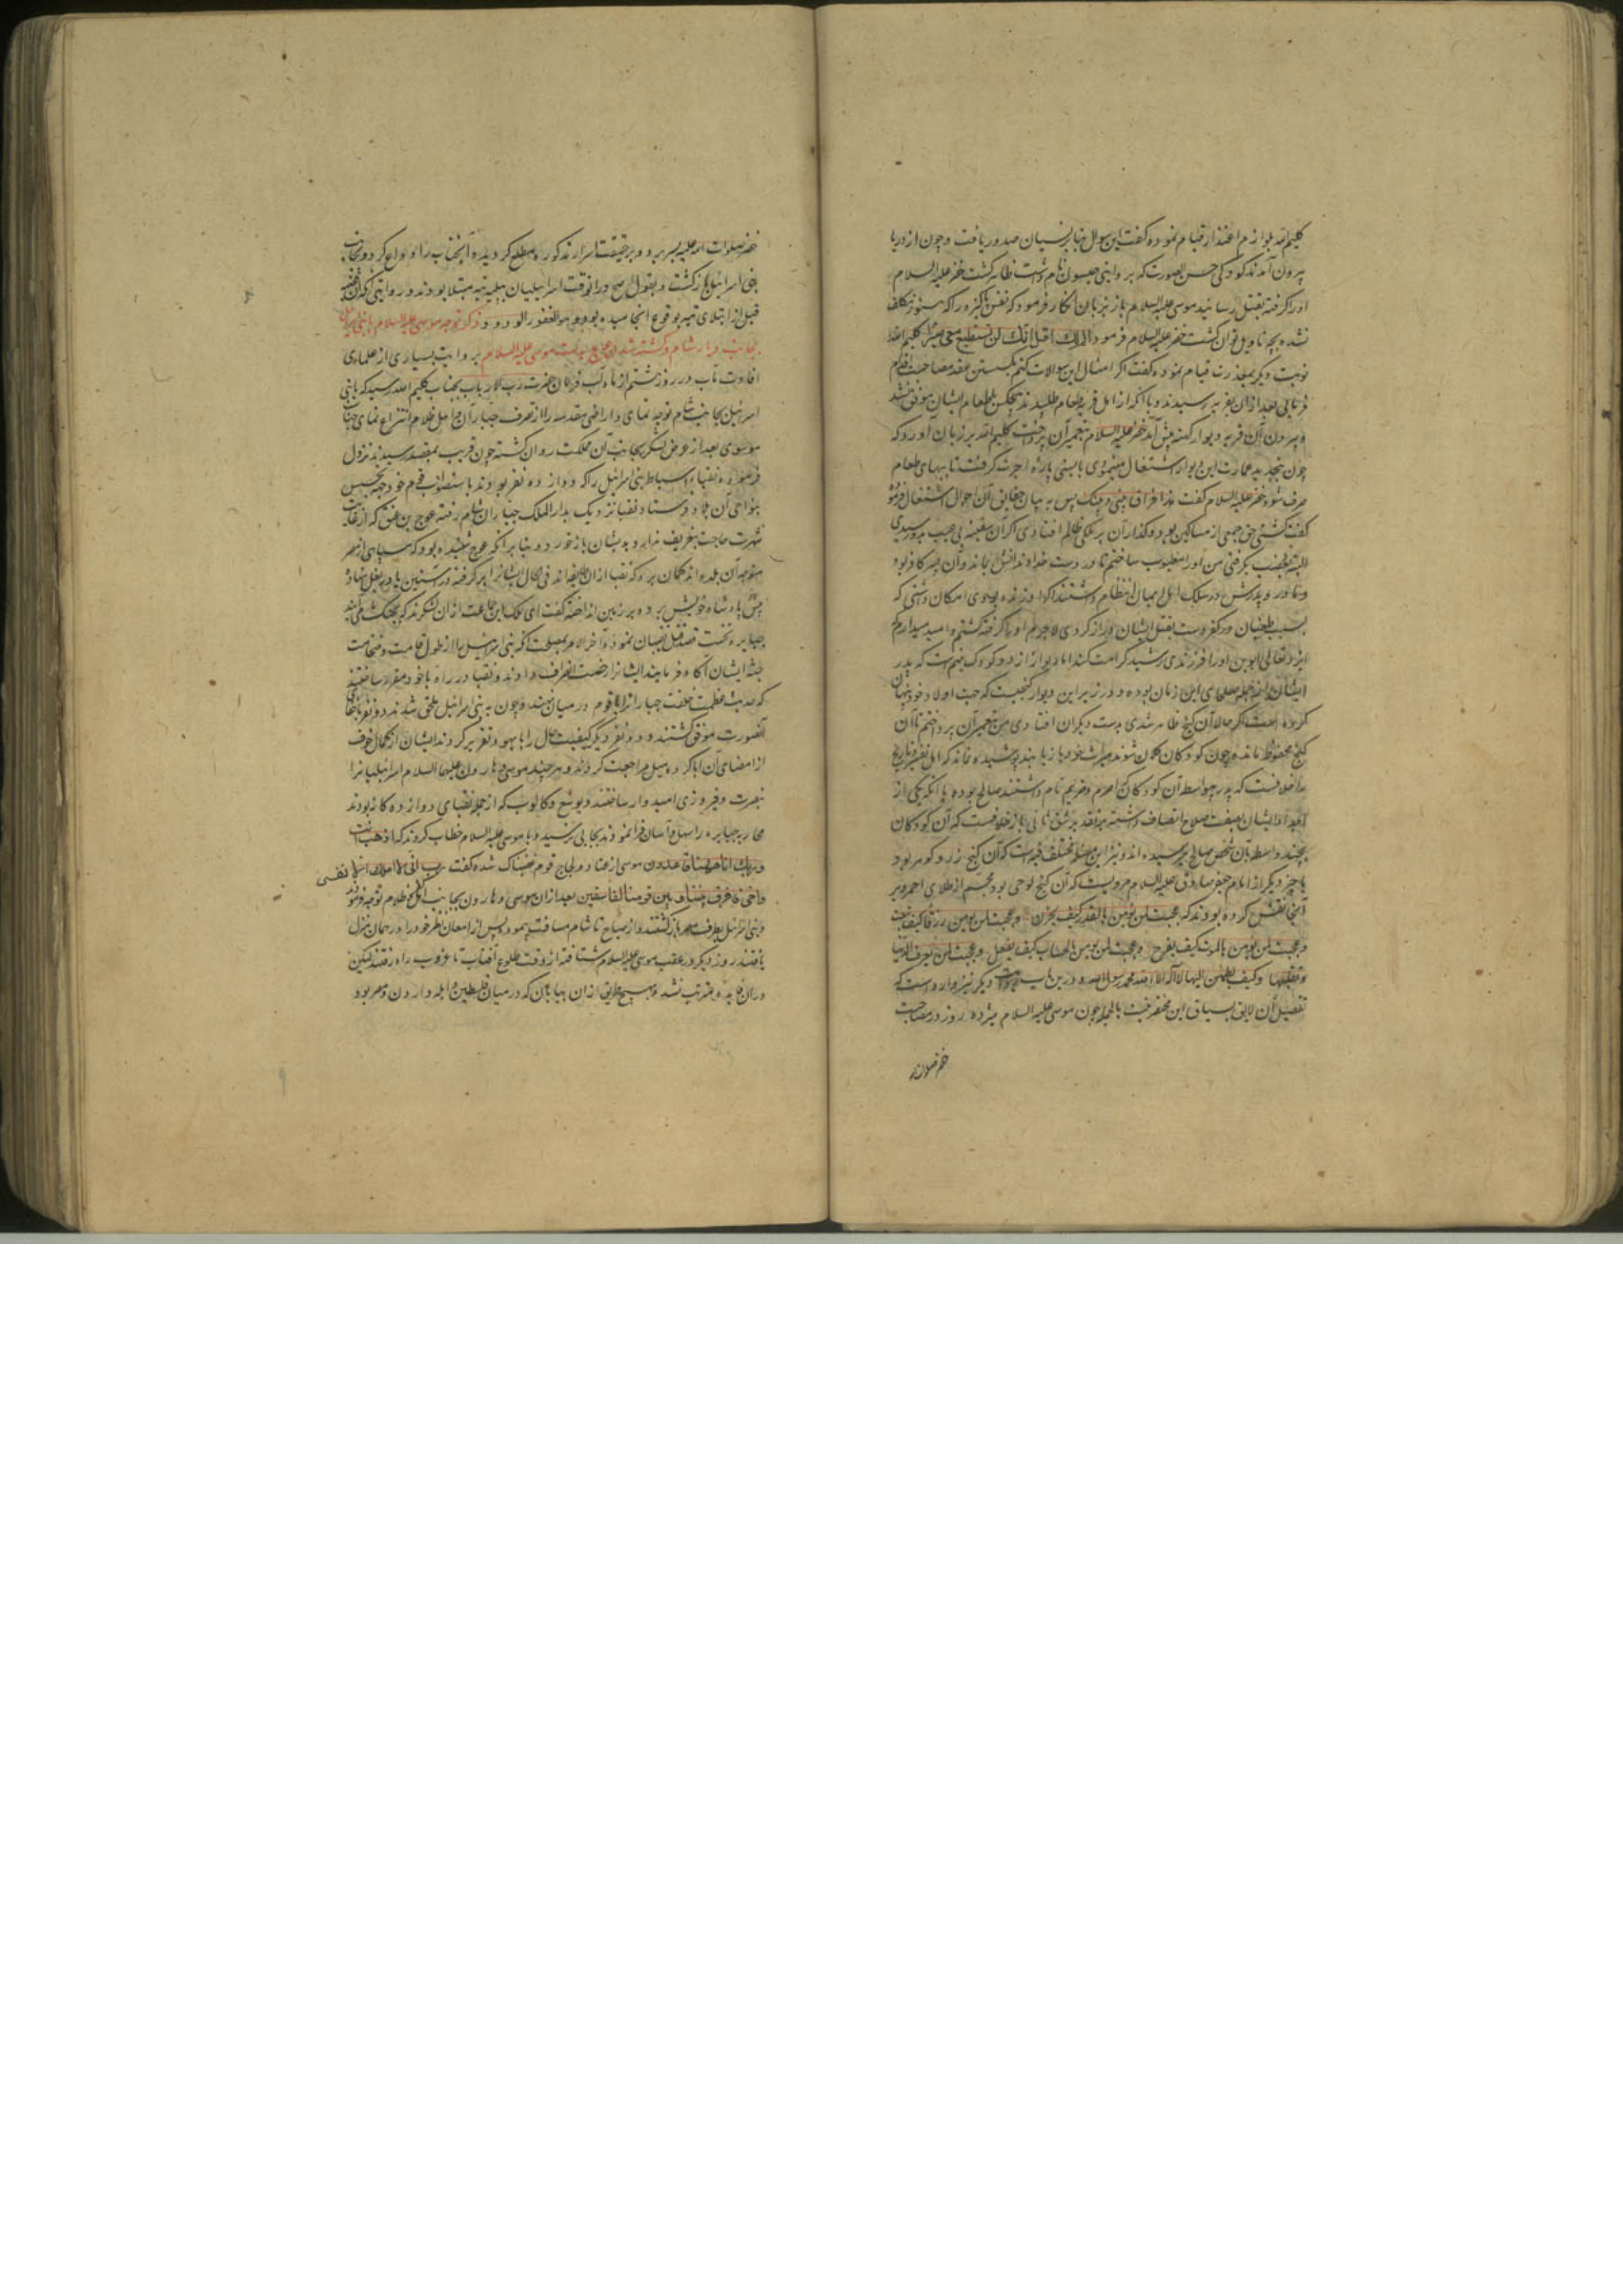 کلیم الله بلوازم اعتذار قیام نموده گفت این سوال بنابر نسیان صدور یافت و چون از دریا
بیرون آمدند کودکی حسن الصورت که بروایتی جیسون نام داشت ظاهر گشت خضر علیه السلام
اورا گرفته بقتل رسانید موسی علیه السلام باز بزبان انکار فرمود که نفس پاکیزه را که هنوز مکلف
نشده بچه تاویل توان کشت خضر علیه السلام فرمود الم اقل لک انک لن تستطیع معی صبرا کلیم الله
نوبت دیگر بمعذرت قیام نموده گفت اگر امثال این سوالات کنم بگسستن عقد مصاحبت اقدام
فرمایی بعد از آن بقریه رسیدند و با آنکه از اهل قریه طعام طلبیدند هیچکس باطعام ایشان موفق نشد
و بیرون آن قریه دیوار کهنه پیش آمد خضر علیه السلام بتعمیر آن پرداخت کلیم الله بر زبان آورد که
چون بتجدید عمارت این دیوار اشتغال مینمودی بایستی پاره اجرت گرفت تا ببهای طعام
صرف شود خضر علیه السلام گفت هذا فراق بینی و بینک پس به بیان حقایق آن احوال اشتغال فرموده
گفت کشتی حق جمعی از مساکین بود و گذار آن بر ملکی ظالم افتادی اگر آن سفینه بی عیب بدو رسیدی
البته بغصب بگرفتی من اورا معیوب ساختم تا در دست خداوندانش بماند و آن پسر کافر بود
و مادر و پدرش در سلک اهل ایمان انتظام داشتند اگر او زنده بودی امکان داشتی که
بسبب طغیان و کفر دست بقتل ایشان دراز کردی لاجرم او را گرفته کشتم و امید میدارم که
ایزد تعالی ابوین اورا فرزندی رشید کرامت کند اما دیوار از دو کودک یتیم است که پدر
ایشان از جمله صلحای این زمان بوده و در زیر این دیوار گنجیست که جهت اولاد خود پنهان
کرده است اگر حالا آن گنج ظاهر شدی بدست دیگران افتادی من بتعمیر آن پرداختم تا آن
گنج محفوظ ماند و چون کودکان کلان شوند میراث خود باز یابند پوشیده نماند که اهل تفسیر و تاریخ را
اختلافست که پدر بیواسطه آن کودکان که اصرم و صریم نام داشتند صالح بوده یا آنکه یکی از
اجداد ایشان بصفت صلاح اتصاف داشته و بر تقدیر شق ثانی باز خلافست که آن کودکان
بچند واسطه بآن شخص صالح میرسیده اند و نیز این مسئله مختلف فیه است که آن گنج زر و گوهر بود
یا چیز دیگر از امام جعفر صادق علیه السلام مرویست که آن گنج لوحی بود مجسم از طلای احمر و بر
آنجا نقش کرده بودند که عجبت لمن یومن بالقدر کیف یحزن و عجبت لمن یومن بالرزق کیف یتعب
و عجبت لمن یومن بالموت کیف یفرح و عجبت لمن یومن بالحساب کیف یغفل و عجبت لمن یعرف الدنیا
و تقلبها و کیف یطمئن الیها لا اله الا الله محمد رسول الله و درین باب روایت دیگر نیز وارد است که
تفصیل آن لایق بسیاق این مختصر نیست بالجمله چون موسی علیه السلام هیژده روز در مصاحبت
خضر صلوات
خضر صلوات الله علیه بسر برد و بر حقیقت اسرار مذکوره مطلع گردید و آنجناب را وداع کرد و بجانب
بنی اسرائیل باز گشت و بقول اصح در آنوقت اسرائیلیان ببلیه تیه مبتلا بودند و روایتی آنکه این قضیه
قبل از ابتلای تیه بوقوع انجامیده بود و هو الغفور الودود ذکر توجه موسی علیه السلام با بنی اسرائیل
بجانب دیار شام و کشته شدن عوج بدست موسی علیه السلام بروایت بسیاری از علمای
افادت مآب در روز هشتم از ماه آب فرمان حضرت رب الارباب بجناب کلیم الله رسید که با بنی
اسرائیل بجانب شام توجه نمای و اراضی مقدسه را از تصرف جباران و اهل ظلام انتزاع نمای جناب
موسوی بعد از عرض لشکر بجانب آن مملکت روان گشته چون قریب بمقصد رسید نزول
فرموده نقباء اسباط بنی اسرائیل را که دوازده نفر بودند باستصواب قوم خود جهة تجسس
بنواحی آن بلاد فرستاد و نقبا نزدیک بدار الملک جباران شام رفته عوج بن عنق که از غایت
شهرت حاجت بتعریف ندارد بدیشان باز خورد و بنابر آنکه عوج شنیده بود که سپاهی از مصر
متوجه آن بلده اند گمان برد که نقبا از آن طایفه اند فی الحال ایشانرا بر گرفته در آستین یا در بغل نهاد و
پیش پادشاه خویش برده بر زمین انداخته گفت ای ملک این جماعت از آن لشکرند که بجنگ شما می آیند
جبابره نخست قصد قتل نقیبان نموده آخر الامر بمصلحت آنکه بنی اسرائیل را از طول قامت و ضخامت
جثه ایشان آگاه فرمایند ایشانرا رخصت انصراف دادند و نقبا در راه با خود مقرر ساختند
که حدیث عظمت خلقت جباران را با قوم در میان ننهند و چون به بنی اسرائیل ملحق شدند دو نفر باخفای
آنصورت موفق گشتند و ده نفر دیگر کیفیت حال را با سهو و تقریر کردند ایشان از کمال خوف
از امضای آن ابا کرده میل مراجعت کردند و هر چند موسی و هارون علیهما السلام اسرائیلیانرا
بنصرت و فیروزی امیدوار ساختند و یوشع و کالوب که از جمله نقبای دوازده گانه بودند
محاربه جبابره را سهل و آسان فرا نمودند بجایی نرسید و با موسی علیه السلام خطاب کردند که اذهب انت
و ربک انا ههنا قاعدون موسی از عناد و لجاج قوم خشمناک شده گفت رب انی لا املک الا نفسی
و اخی فافرق بیننا و بین قومنا الفاسقین بعد از آن موسی و هارون بجانب اهل ظلام توجه فرمودند
و بنی اسرائیل بطرف مصر باز گشتند و از صباح تا شام مسافت پیمودند پس از امعان نظر خود را در همان منزل
یافتند روز دیگر در عقب موسی علیه السلام شتافته از وقت طلوع آفتاب تا غروب راه رفتند لیکن
در آن فایده مترتب نشد و بهیچ طریق از آن بیابان که در میان فلسطین و ایله و اردن و مصر بود